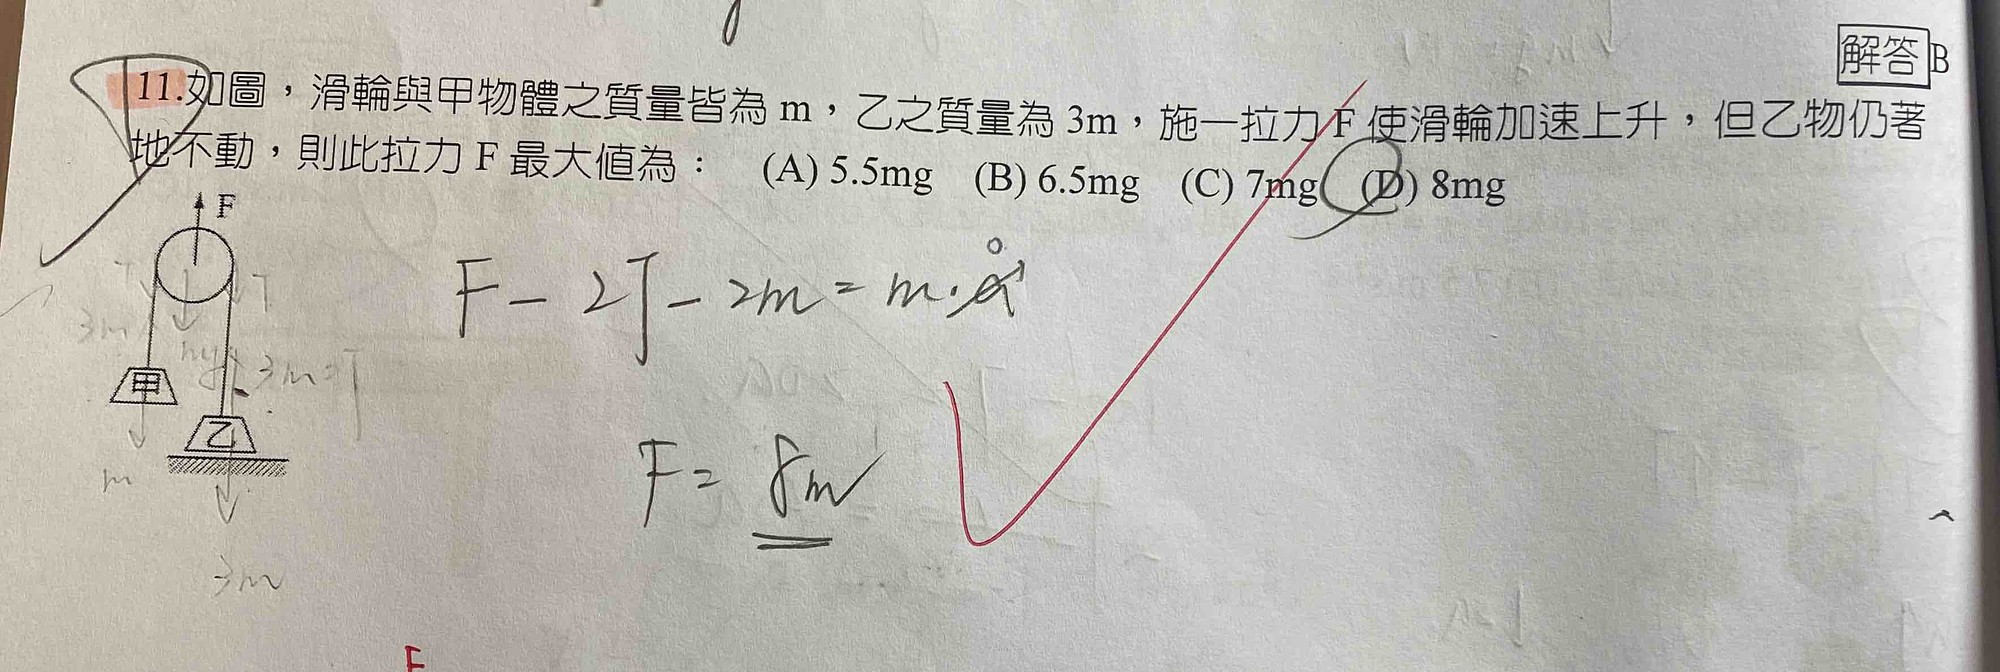 解答 B
11.如圖，滑輪與甲物體之質量皆為 m，乙之質量為 3m，施一拉力 F 使滑輪加速上升，但乙物仍著
地不動，則此拉力 F 最大值為： (A) 5.5mg (B) 6.5mg (C) 7mg (D) 8mg
F
T T
3m
mg
3m=T
甲
乙
m
3m
F - 2T - 2m = m·a 0
F = 8m
F